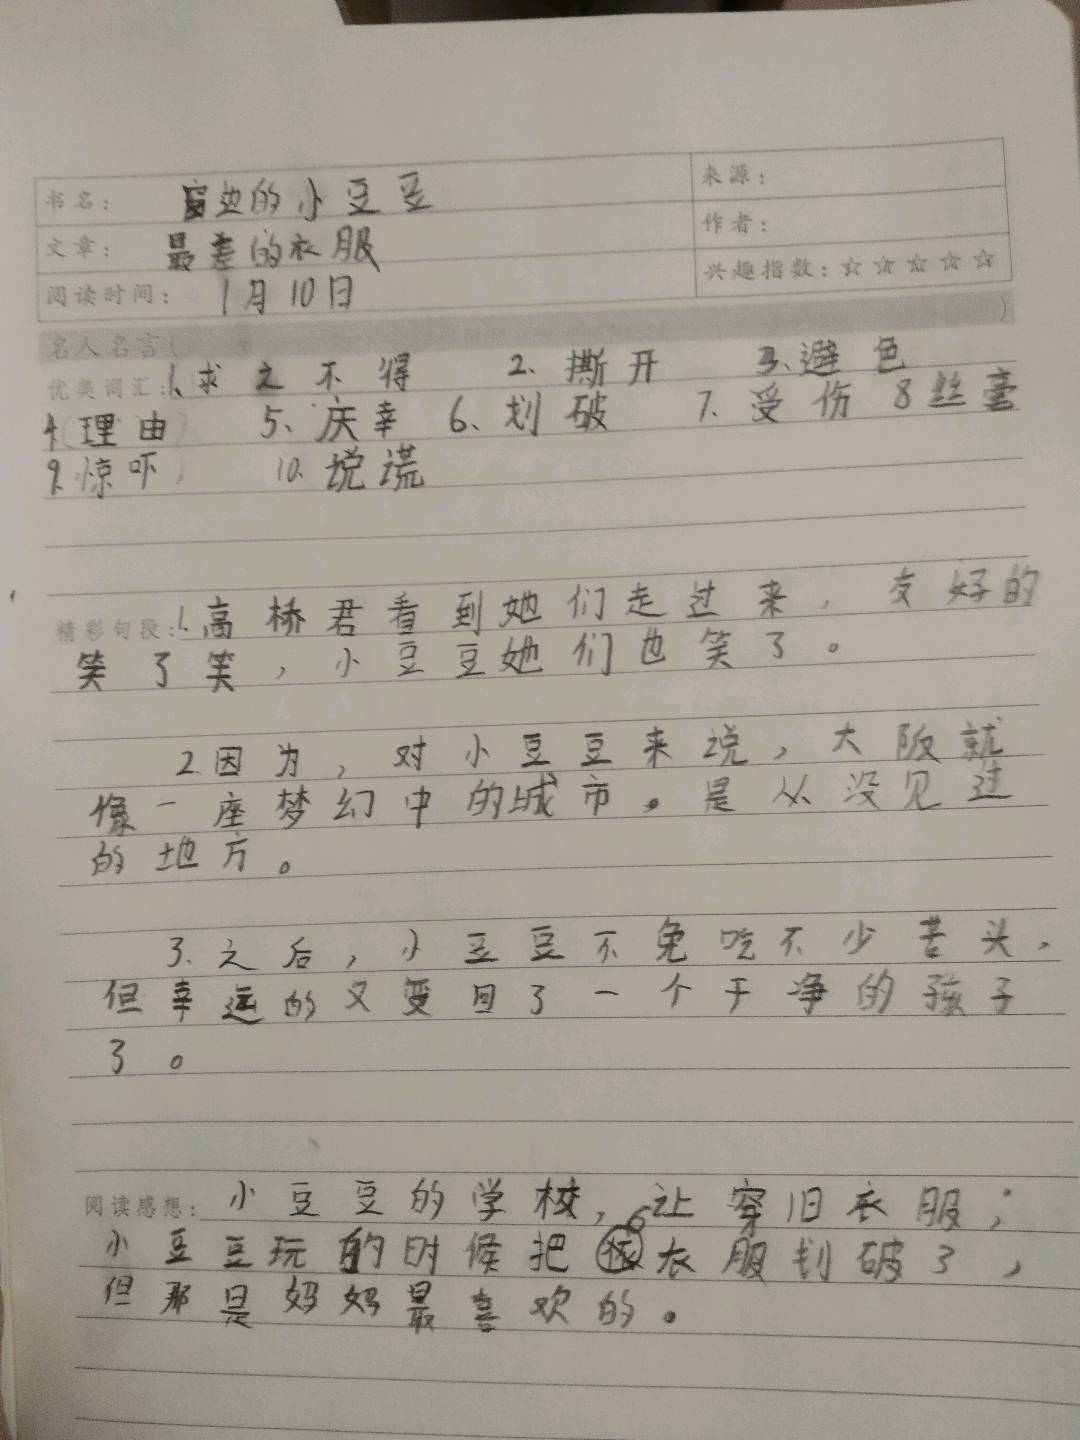 书名： 窗边的小豆豆 来源：
文章： 最差的衣服 作者：
阅读时间： 1月10日 兴趣指数：☆☆☆☆☆
名人名言( )
优美词汇：1.求之不得 2.撕开 3.避色
4.(理由) 5.庆幸 6.划破 7.受伤 8丝毫
9.惊吓) 10.说谎
精彩句段：1.高桥君看到她们走过来，友好的
笑了笑，小豆豆她们也笑了。
2.因为，对小豆豆来说，大阪就
像一座梦幻中的城市。是从没见过
的地方。
3.之后，小豆豆不免吃不少苦头，
但幸运的又变回了一个干净的孩子
了。
阅读感想：小豆豆的学校，让穿旧衣服；
小豆豆玩的时候把衣服划破了，
但那是妈妈最喜欢的。